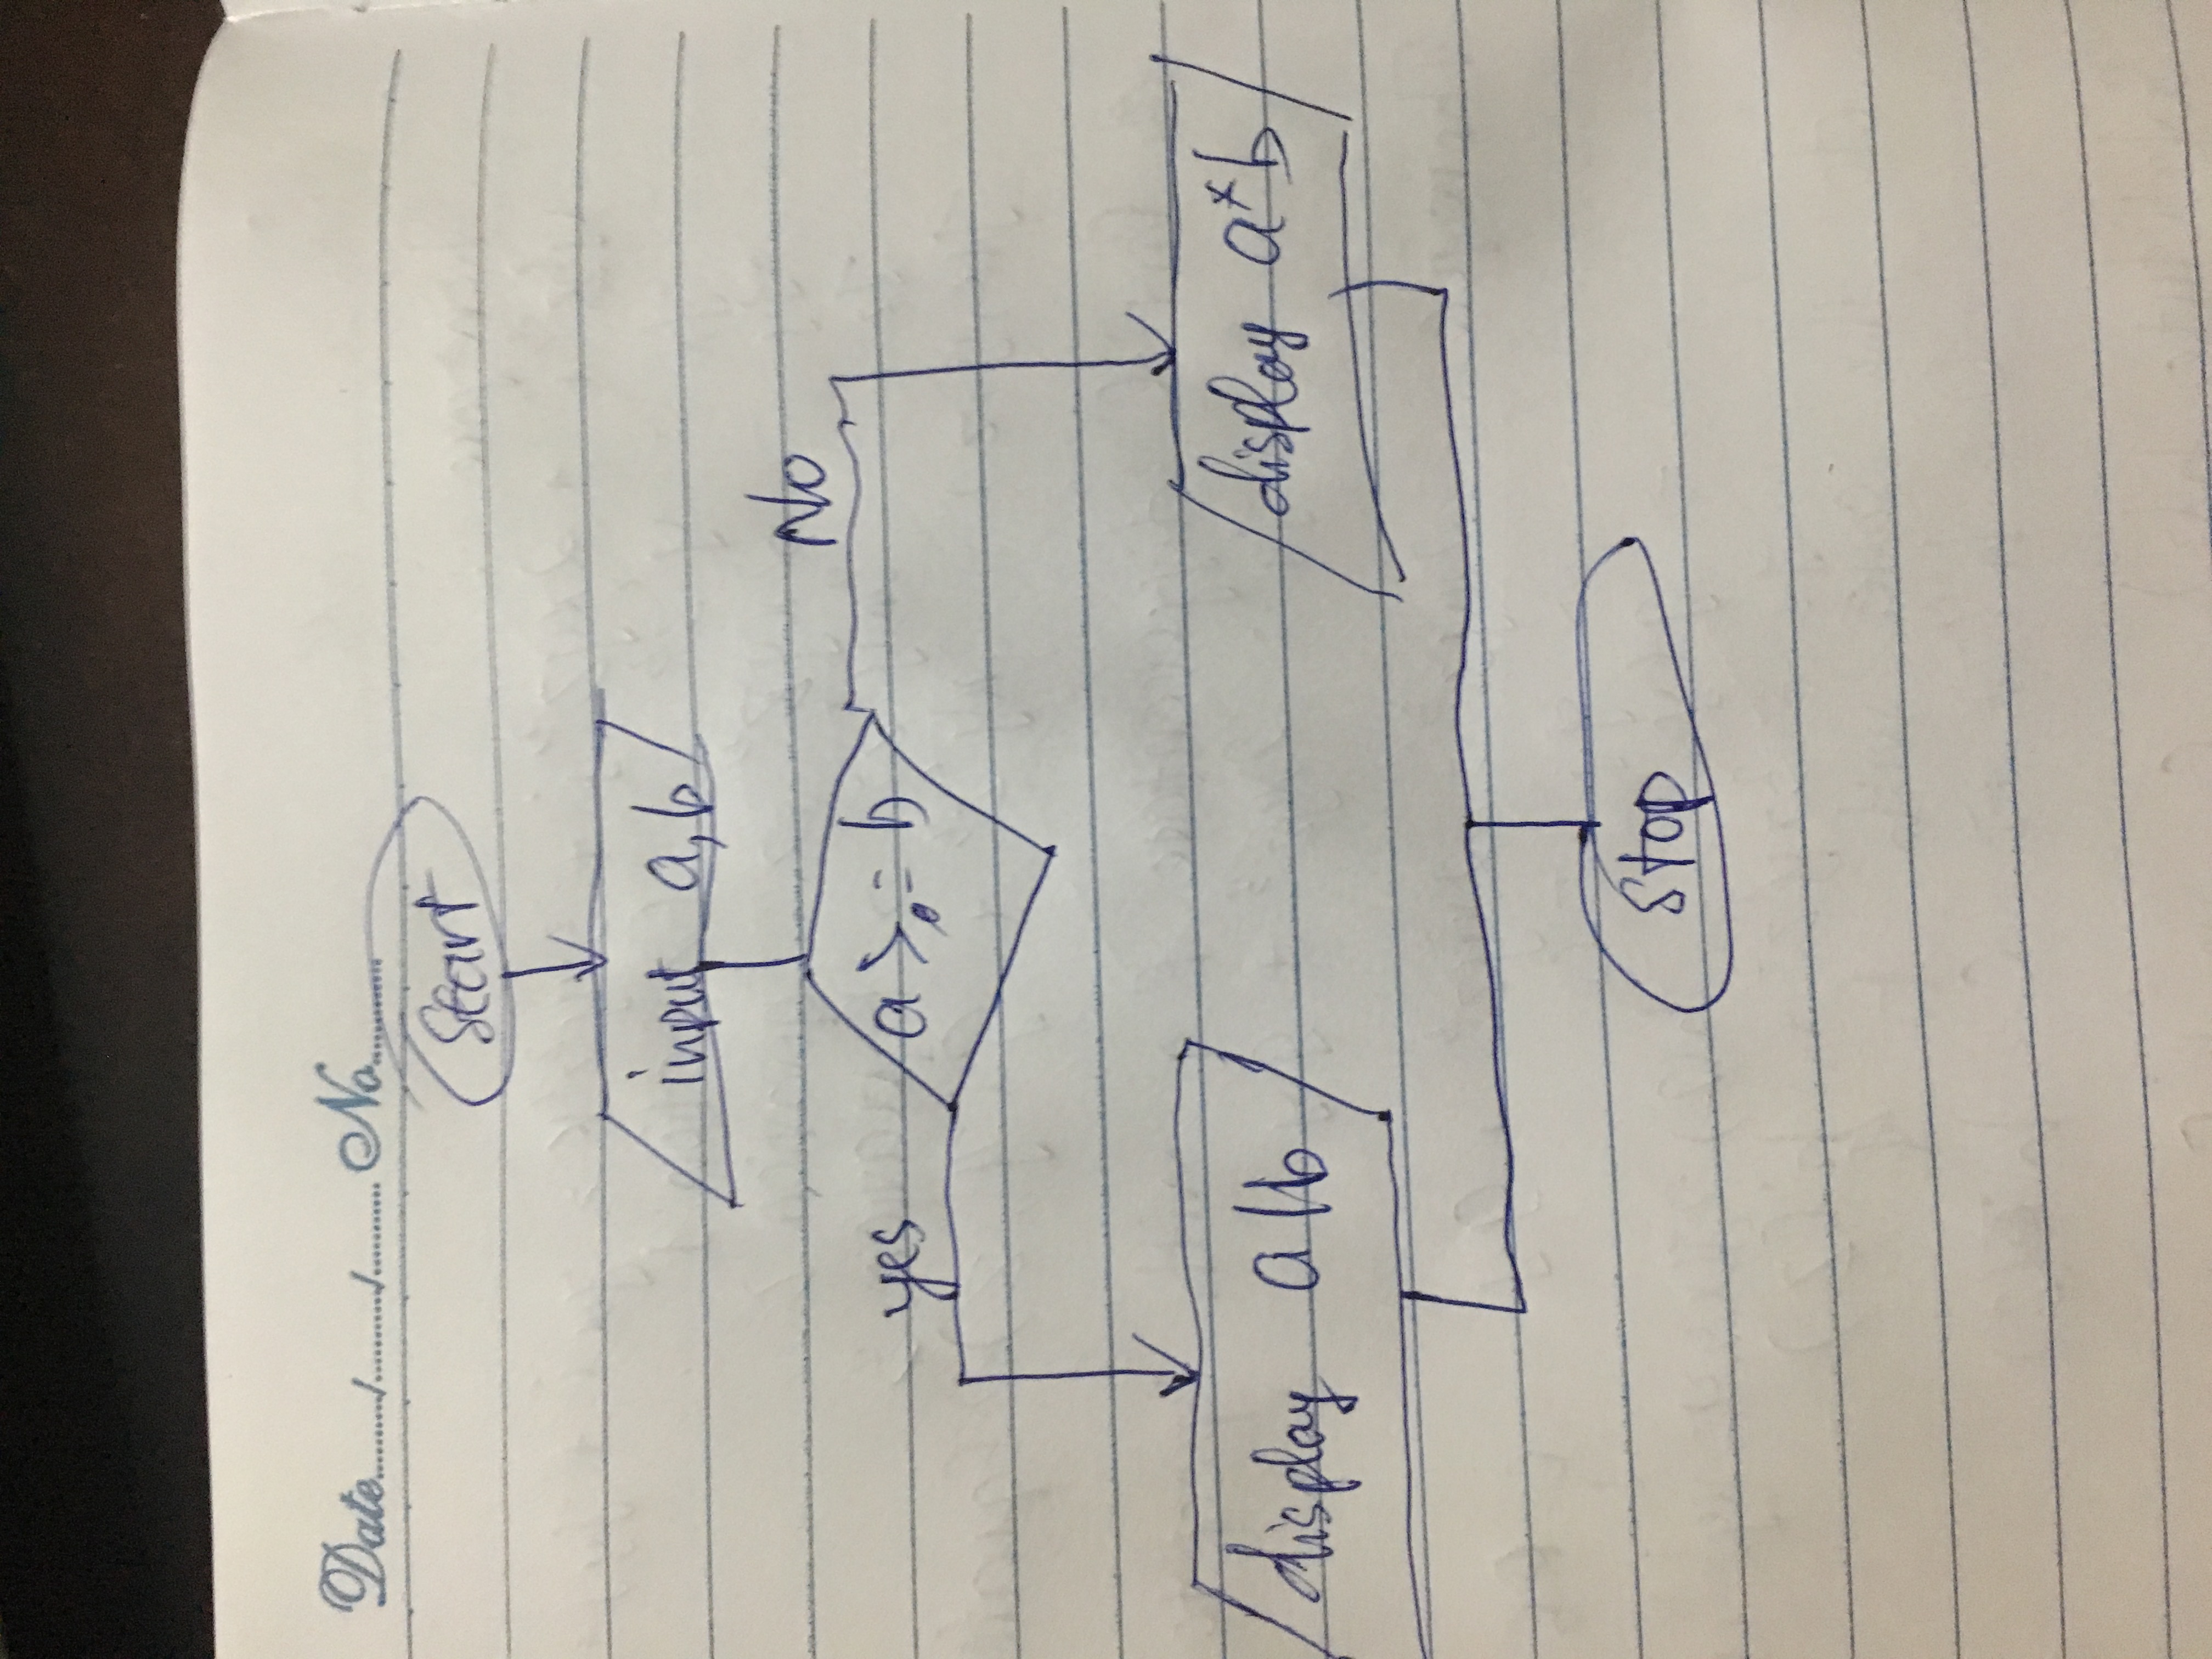 Date......../........./......... No..........
Start
input a, b
No
yes
a >= b
display a||b
display a*b
Stop